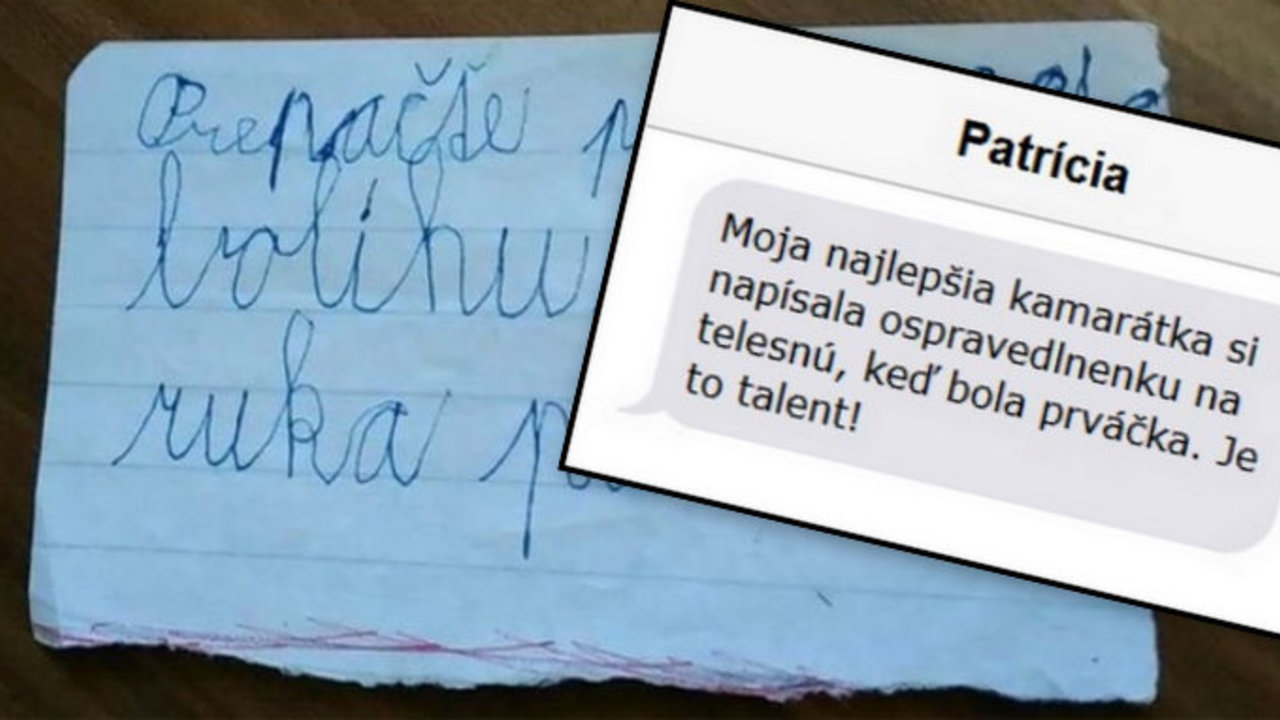 Prepačše
bolíhu
ruka
Patrícia
Moja najlepšia kamarátka si
napísala ospravedlnenku na
telesnú, keď bola prváčka. Je
to talent!